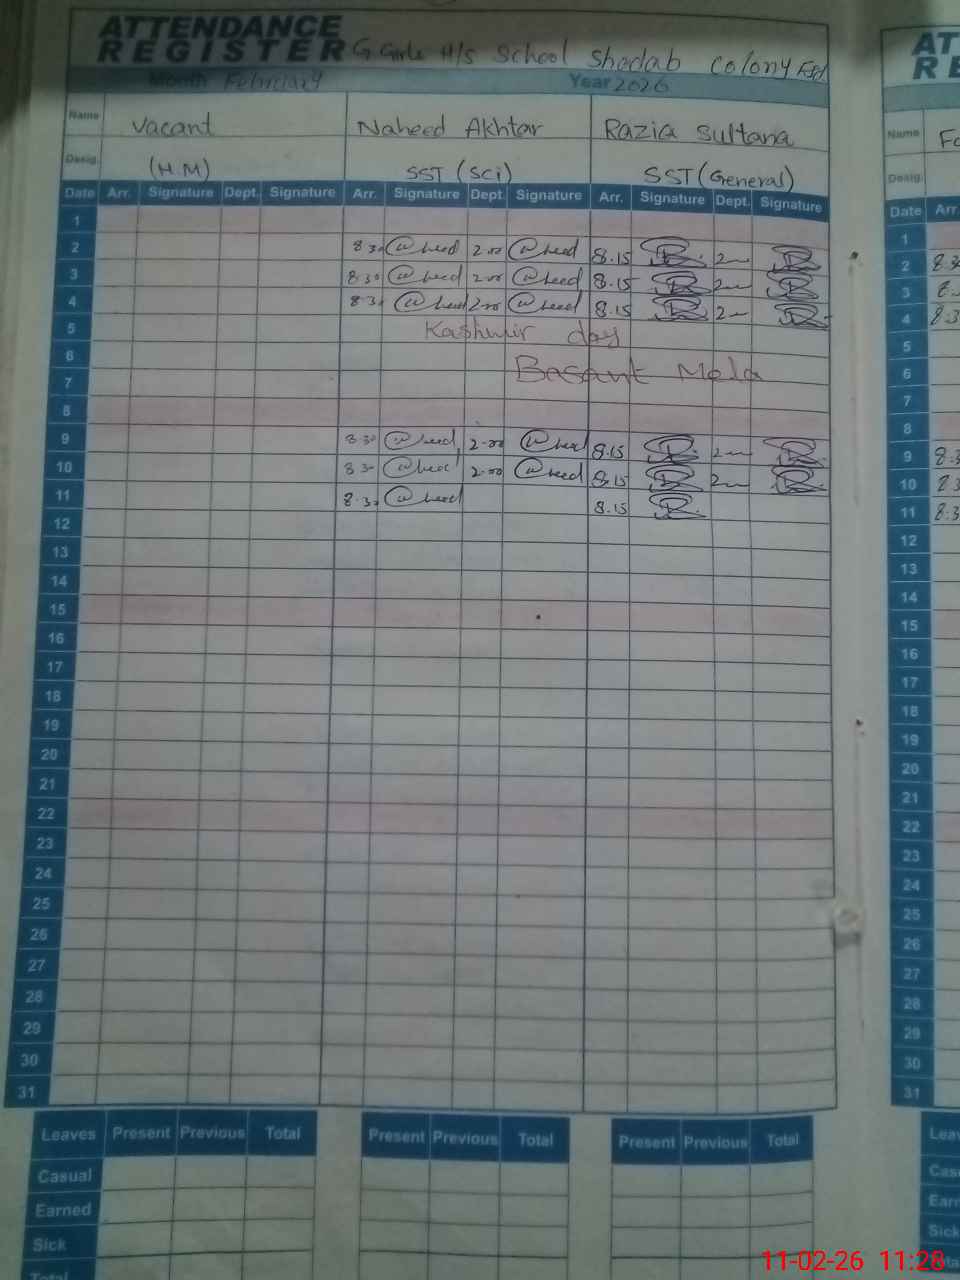 ATTENDANCE
REGISTER G Girls H/S School Shadab Colony Fsd
Month February Year 2026
Name Vacant Naheed Akhtar Razia Sultana
Desig. (H.M) SST (Sci) SST (General)
Date Arr. Signature Dept. Signature Arr. Signature Dept. Signature Arr. Signature Dept. Signature
1
2 8.30 2.00 8.15 2
3 8.30 2.00 8.15 2
4 8.30 2.00 8.15 2
5 Kashmir day
6 Basant Mela
7
8
9 8.30 2.00 8.15 2
10 8.30 2.00 8.15 2
11 8.30 8.15
12
13
14
15
16
17
18
19
20
21
22
23
24
25
26
27
28
29
30
31
Leaves Present Previous Total Present Previous Total Present Previous Total
Casual
Earned
Sick
Total
AT
RE
Name
Desig.
Date Arr.
1
2 8.30
3
4 8.3
5
6
7
8
9 8.3
10
11 8.3
12
13
14
15
16
17
18
19
20
21
22
23
24
25
26
27
28
29
30
31
Leav
Cas
Earn
Sick
11-02-26 11:28